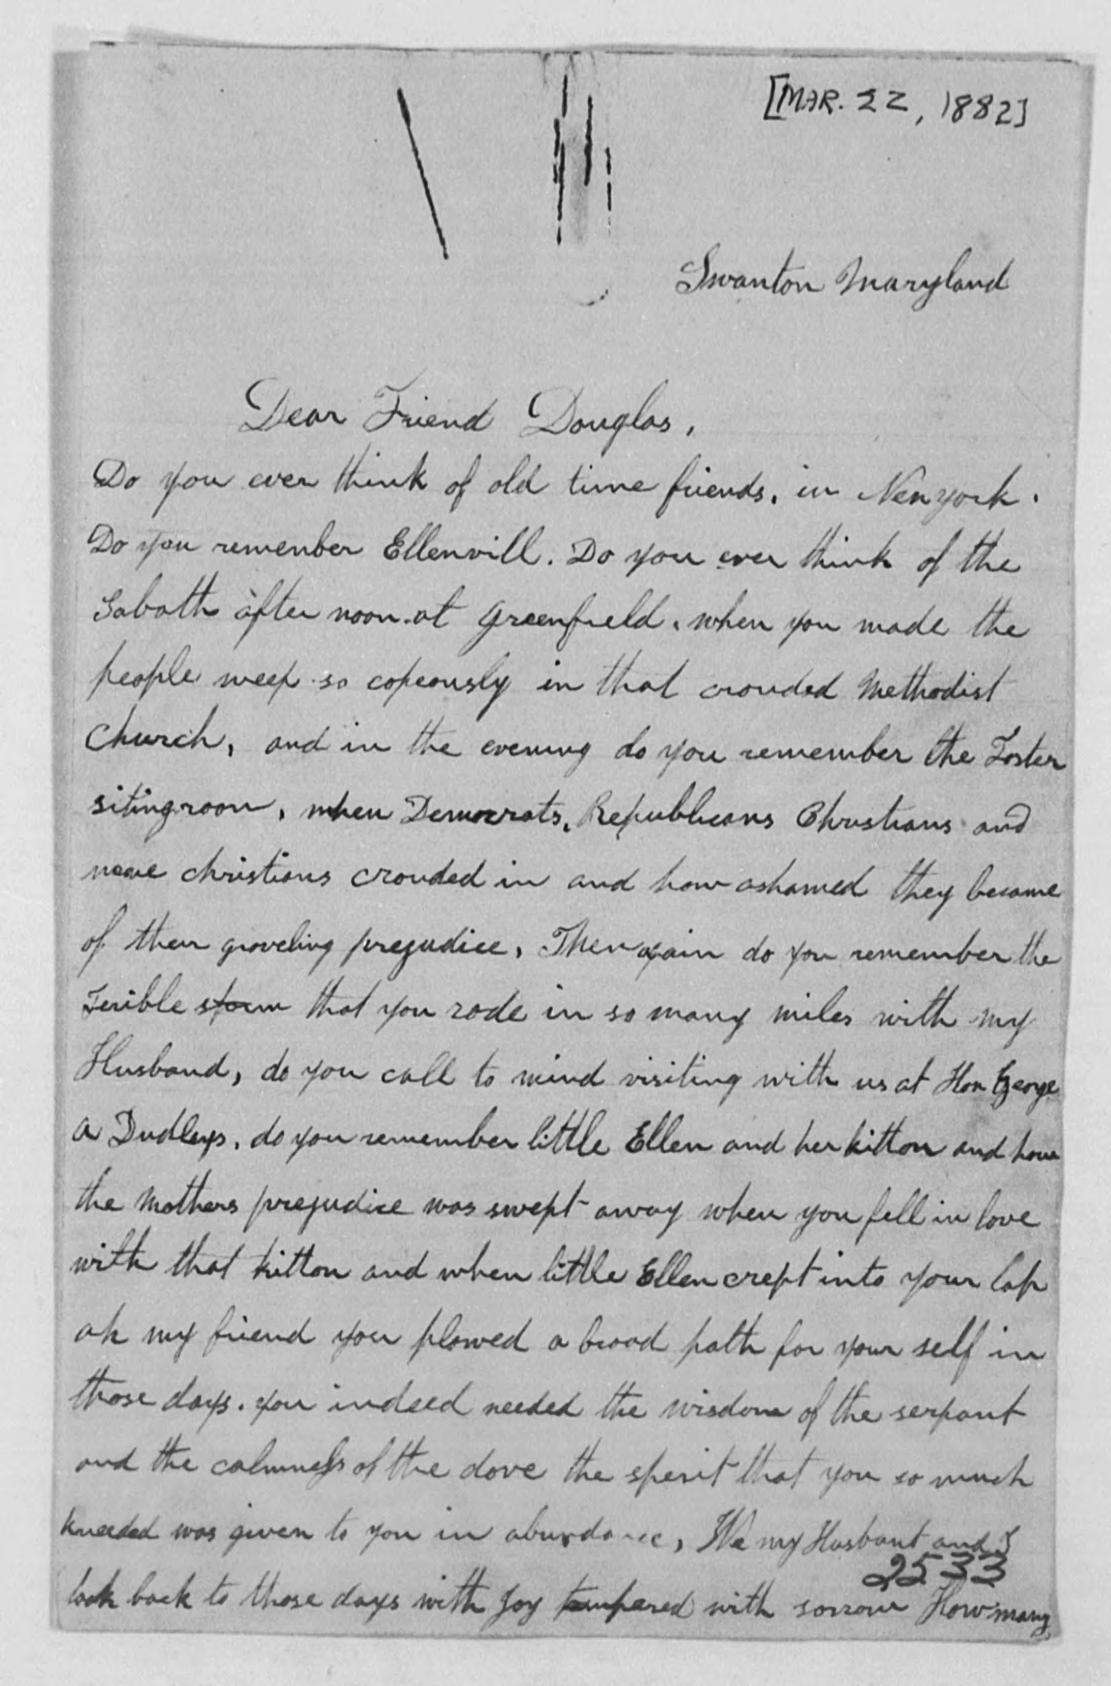 [MAR. 22, 1882]
Swanton Maryland
Dear Friend Douglas,
Do you ever think of old time friends, in Newyork.
Do you remember Ellenvill. Do you ever think of the
Sabath after noon at Greenfield, when you made the
people weep so copeously in that crouded Methodist
Church, and in the evening do you remember the Foster
sitingroom, when Democrats, Republicans Christians and
none christians crouded in and how ashamed they became
of their groveling prejudice, Then again do you remember the
Terible storm that you rode in so many miles with my
Husband, do you call to mind visiting with us at Hon George
A Dudleys, do you remember little Ellen and her kitton and how
the Mothers prejudice was swept away when you fell in love
with that kitton and when little Ellen crept into your lap
ah my friend you plowed a broad path for your self in
those days. you indeed needed the wisdom of the serpant
and the calmness of the dove the sperit that you so much
kneeded was given to you in abundance, We my Husbant and I
2533
look back to those days with joy tempered with sorrow How many